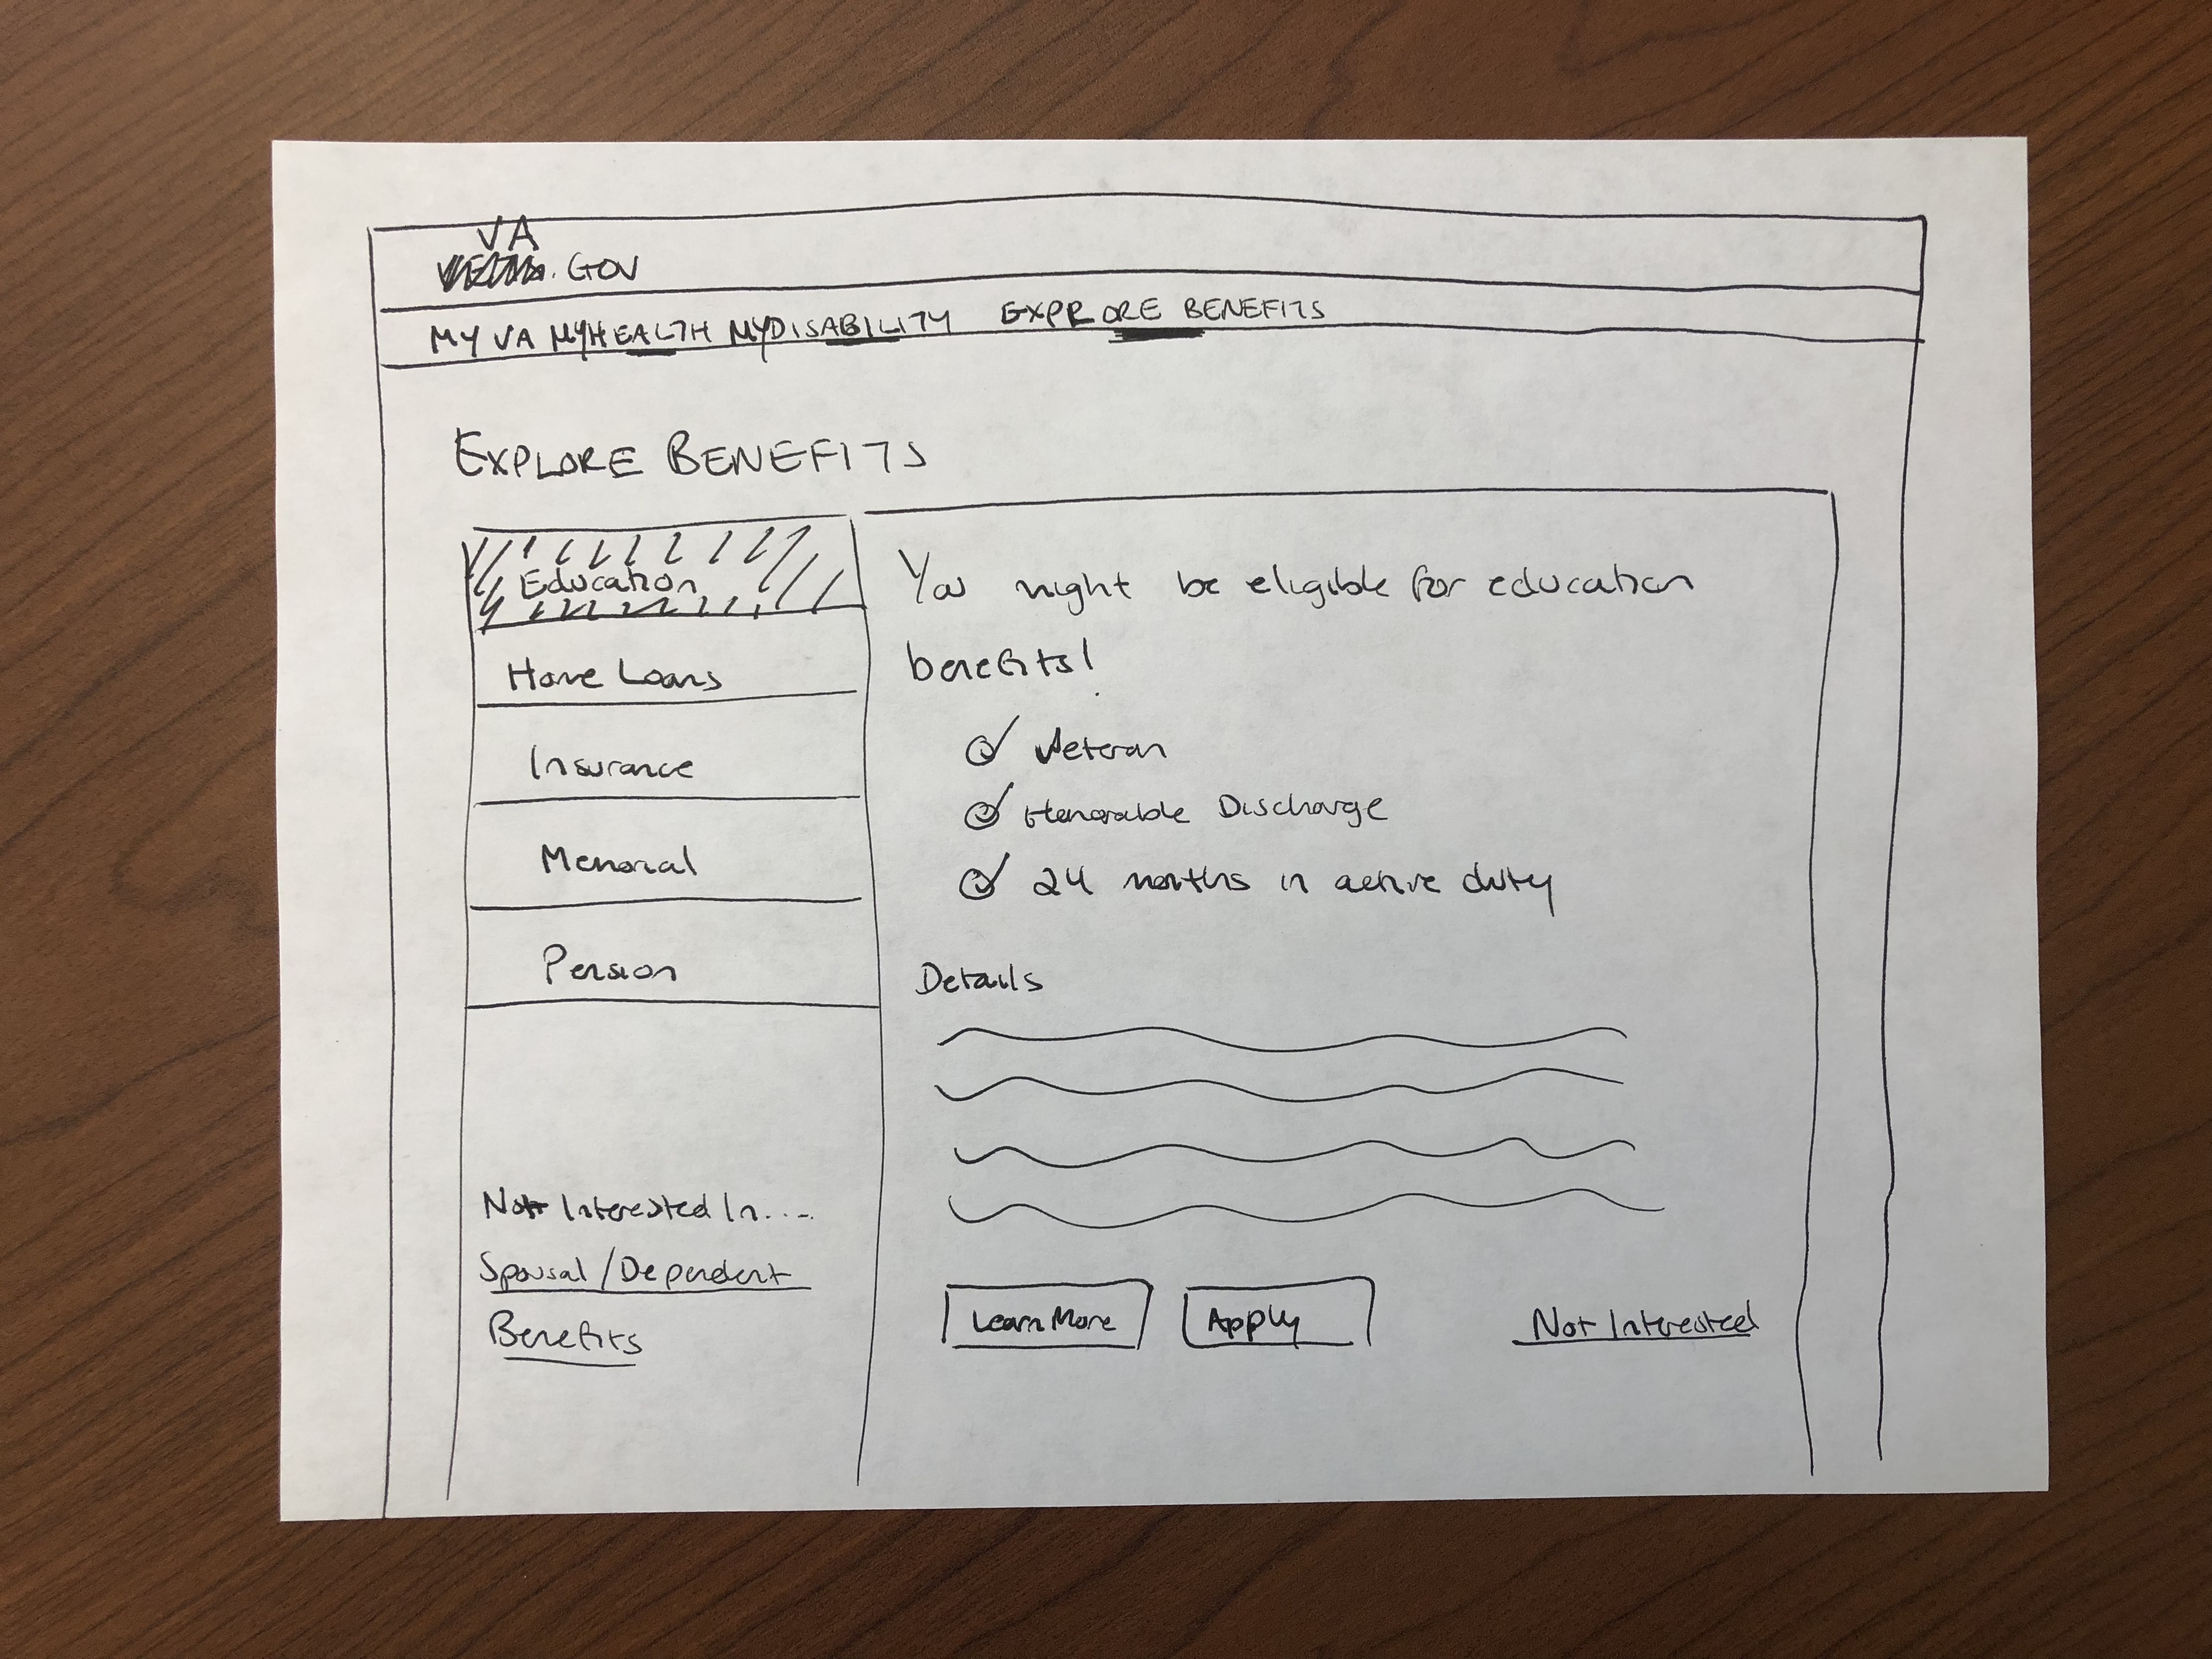 VA
.GOV
MY VA MYHEALTH MYDISABILITY EXPRORE BENEFITS
EXPLORE BENEFITS
Education
Home Loans
Insurance
Memorial
Pension
Not Interested In....
Spousal/Dependent
Benefits
You might be eligible for education
benefits!
Veteran
Honorable Discharge
24 months in active duty
Details
Learn More
Apply
Not Interested